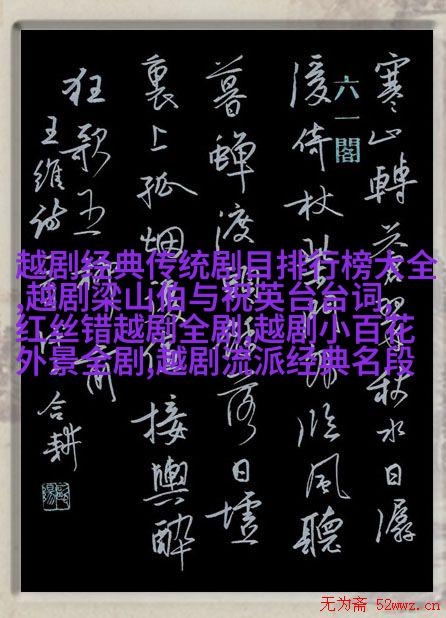 寒山轉蒼翠秋水日潺
六一閣
湲倚杖柴門外臨風聽
暮蟬渡頭餘落日墟
裏上孤烟復值接輿醉
狂歌五柳前
王維詩
合耕
越剧经典传统剧目排行榜大全
,越剧梁山伯与祝英台台词,
红丝错越剧全剧,越剧小百花
外景全剧,越剧流派经典名段
无为斋 52wwz.cn